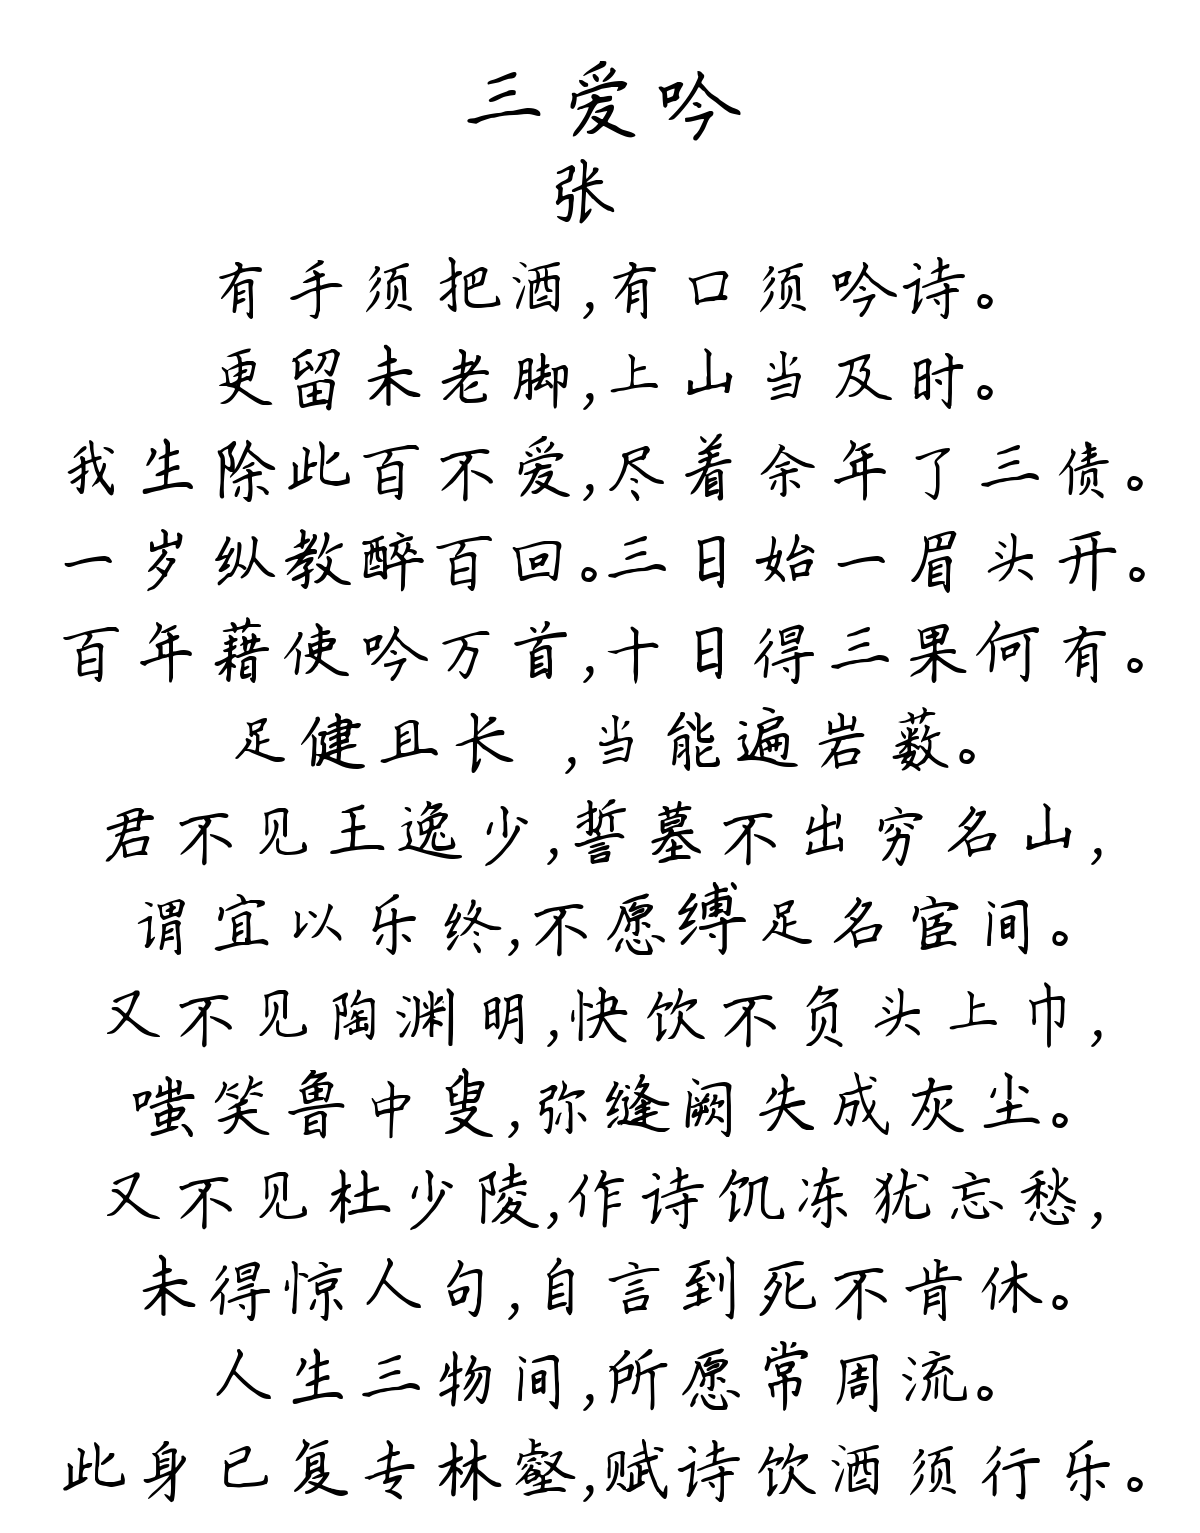 三爱吟
张
有手须把酒,有口须吟诗。
更留未老脚,上山当及时。
我生除此百不爱,尽着余年了三债。
一岁纵教醉百回。三日始一眉头开。
百年藉使吟万首,十日得三果何有。
足健且长 ,当能遍岩薮。
君不见王逸少,誓墓不出穷名山,
谓宜以乐终,不愿缚足名宦间。
又不见陶渊明,快饮不负头上巾,
嗤笑鲁中叟,弥缝阙失成灰尘。
又不见杜少陵,作诗饥冻犹忘愁,
未得惊人句,自言到死不肯休。
人生三物间,所愿常周流。
此身已复专林壑,赋诗饮酒须行乐。